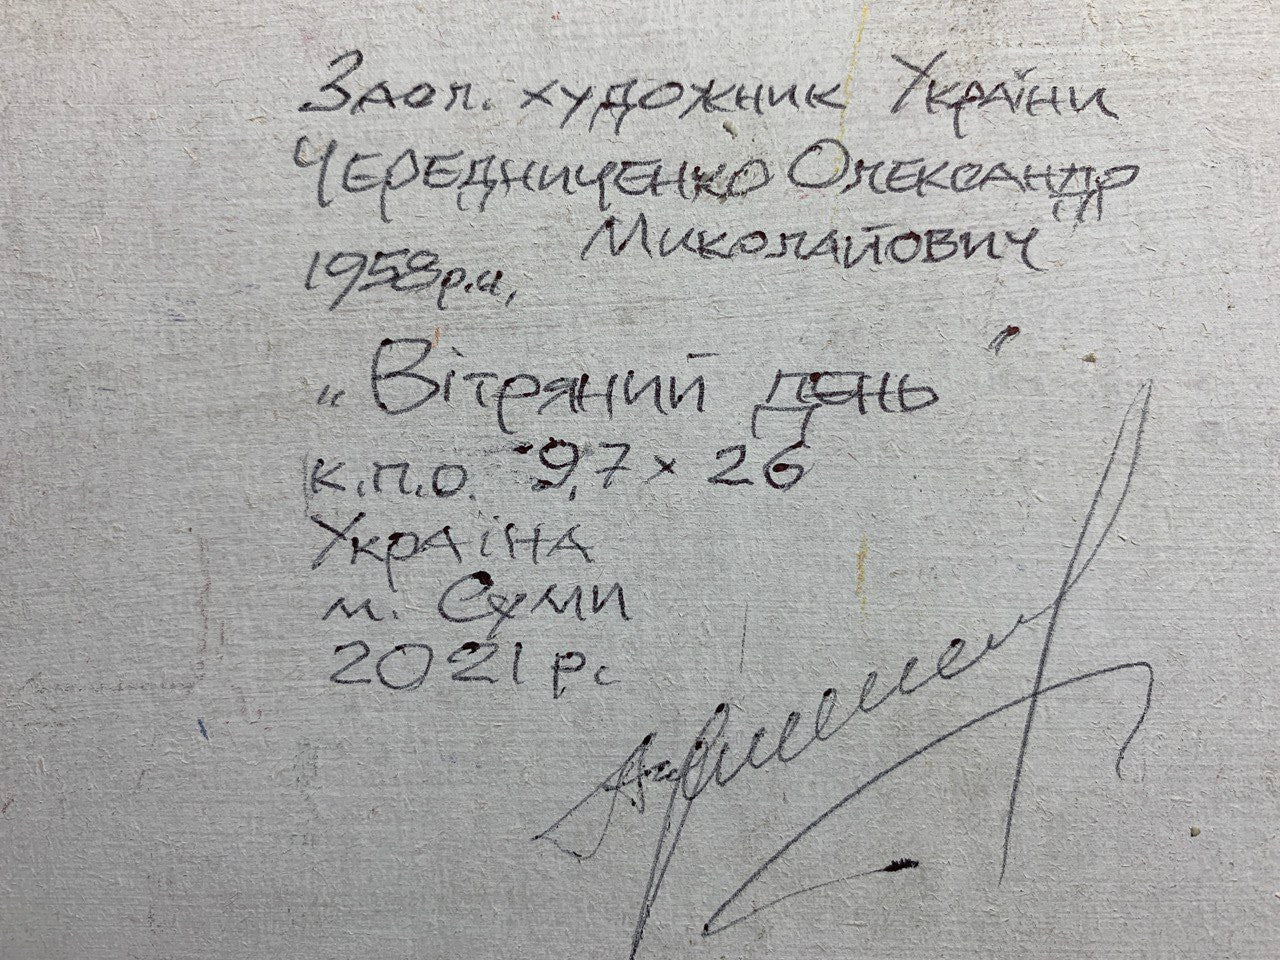 Засл. художник України
Чередниченко Олександр
Миколайович
1958р.н.
„Вітряний день"
к.п.о. 9,7 × 26
Україна
м. Суми
2021 р.